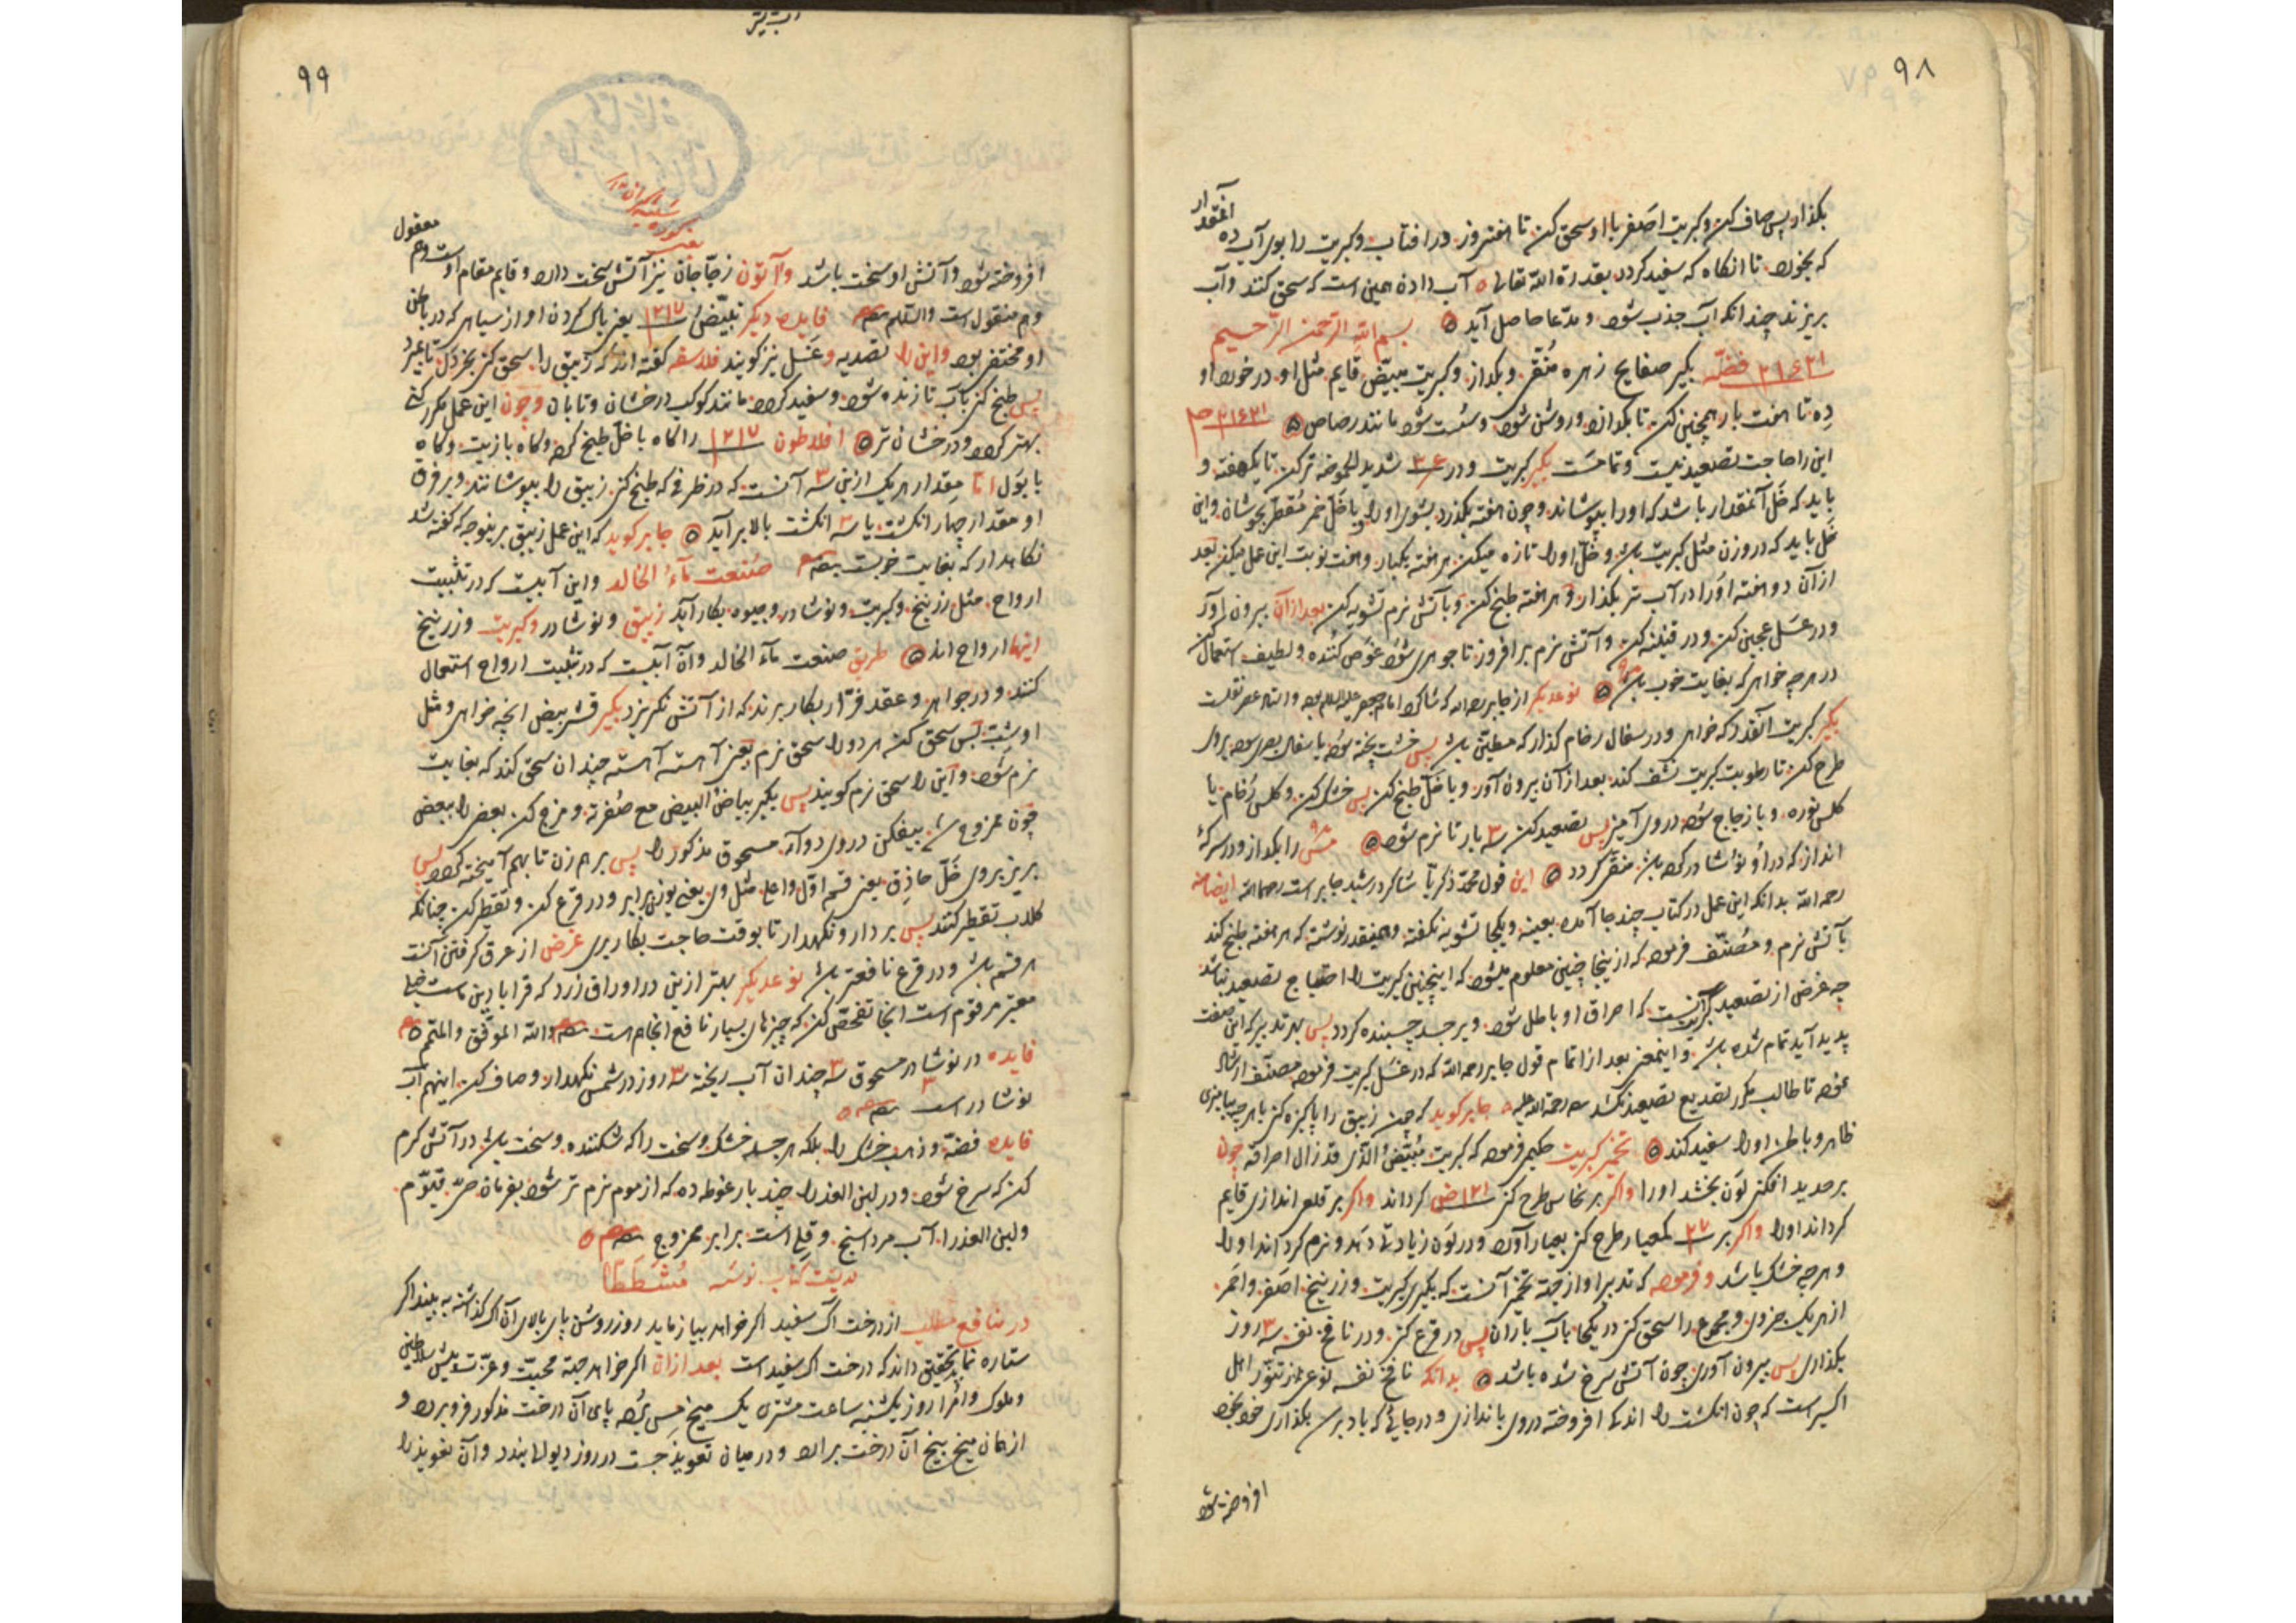 ۹۸
بکذار پس صاف کن و کبریت اصفر با او سحق کن تا هفت روز در افتاب و کبریت را بوی آب ده آنقدار
که بخورد تا انکاه که سفید کردد بقدرة الله تعالی آب دادن همین است که سحق کنند و آب
بریزند چندانکه آب جذب شود و مدعا حاصل آید بسم الله الرحمن الرحیم
فضّه بکیر صفایح زهره منقّی و بکداز و کبریت مبیّض قایم مثل او در خورد او
ده تا هفت بار همچنین کن تا بکدازد و روشن شود و سست شود مانند رصاص
این را حاجت تصعید نیست و تمامست بکیر کبریت و در شدید الحموضه تر کن تا یکهفته و
باید که خلّ آنمقدار باشد که او را بپوشاند و چون هفته بکذرد بشوی او را و با خلّ خمر مقطّر بجوشان و این
خل باید که در وزن مثل کبریت باشد و خلّ او را تازه میکن هر هفته یکبار و هفت نوبت این عمل میکن بعد
از آن دو هفته او را در آب تر بکذار و هر هفته طبخ کن و با آتش نرم تشویه کن بعد از آن بیرون آور
و در عسل عجین کن و در قنینه کن و آتش نرم برافروز تا جوهری شود غوص کننده و لطیف استعمال کن
در هر چه خواهی که بغایت خوب باشد نوعدیکر از جابر رحمه الله که شاکرد امام جعفر علیه السلام بود
بکیر کبریت آنقدر که خواهی و در سفال رخام کذار که مطیّن باشد پس خشت پخته سوده یا سفال سوده بروی
طرح کن تا رطوبت کبریت نشف کند بعد از آن بیرون آور و با خلّ طبخ کن پس خشک کن و کلس رخام یا
کلس نوره و یا زجاج سوده در وی آمیز پس تصعید کن سه بار تا نرم شود مس را بکداز و در سرکهٔ
انداز که در او نوشادر کرده باشد منقّی کردد این قول محمد زکریا شاکرد رشید جابر است رحمه الله ایضا منه
رحمه الله بدانکه این عمل در کتاب چند جا آمده بعینه و یکجا تشویه نکفته و همینقدر نوشته که هر هفته طبخ کند
با آتش نرم و مصنّف فرموده که از اینجا چنین معلوم میشود که اینچنین کبریت را احتیاج تصعید نباشد
چه غرض از تصعید کبریت آنست که احراق او باطل شود و بر جسد چسبنده کردد پس بهر تدبیر که این صفت
پدید آید تمام شده باشد و اینمعنی بعد از اتمام قول جابر رحمه الله که در غسل کبریت فرموده مصنّف ارشاد
نموده تا طالب مکرر تصدیع تصعید نکشد رحمة الله علیه جابر کوید که چون زیبق را پاکیزه کنی با هر چه بیامیزی
ظاهر و باطن او را سفید کند تخمیر کبریت حکیم فرموده که کبریت مبیّض الذی قد زال احراقه چون
بر حدید افکنی لون بخشد او را و اکر بر نحاس طرح کنی کرداند و اکر بر قلعی اندازی قایم
کرداند او را و اکر بر یکعیار طرح کنی بعیار آورد و در لون زیادتی دهد و نرم کرداند او را
و هر چه خشک باشد و فرموده که تدبیر او از جهة تخمیر آنست که بکیری کبریت و زرنیخ اصفر و احمر
از هر یک جزوی و مجموع را سحق کنی در یکجا بآب باران پس در قرع کنی و در نافخ نفسه سه روز
بکذاری پس بیرون آوری چون آتشی سرخ شده باشد بدانکه نافخ نفسه نوعی از تنّور اهل
اکسیر است که چون انکشت را اندک افروخته در وی اندازی و در جائی که باد برسد بکذاری خود بخود
افروخته شود
۹۹
افروخته شود و آتش او سخت باشد و آتون زجّاجان نیز آتش سخت دارد و قایم مقام اوست و هم معقول
و هم منقول است والسلام فایده دیکر تبییض یعنی پاک کردن او از سیاهی که در باطن
او مختفی بود و این را تصدیه و غسل نیز کویند فلاسفه کفته اند که زیبق را سحق کن بخردل تا بمیرد
پس طبخ کن بآب تا زنده شود و سفید کردد مانند کوکب درخشان و تابان و چون این عمل مکرر کنی
بهتر کردد و درخشان تر افلاطون را کاه با خلّ طبخ کرده و کاه با زیت و کاه
با بول اما مقدار هر یک ازین سه آنست که در ظرفی که طبخ کنی زیبق را بپوشانند و بر فوق
او مقدار چهار انکشت یا سه انکشت بالا برآید جابر کوید که این عمل زیبق برینوجه که کفته شد
نکاهدار که بغایت خوبست صنعت مآء الخالد و این آبیست که در تثبیت
ارواح مثل زرنیخ و کبریت و نوشادر و جیوه بکار آید زیبق و نوشادر و کبریت و زرنیخ
اینها ارواح اند طریق صنعت مآء الخالد و آن آبیست که در تثبیت ارواح استعمال
کنند و در جواهر و عقد فرّار بکار برند که از آتش نکریزد بکیر قشر بیض آنچه خواهی و مثل
او شبّ پس سحق کن هر دو را سحق نرم یعنی آهسته آهسته چندان سحق کند که بغایت
نرم شود و این را سحق نرم کویند پس بکیر بیاض البیض مع صفرته و مزج کن بعضی را ببعضی
چون ممزوج شد بیفکن در وی دوآء مسحوق مذکور را پس برهم زن تا بهم آمیخته کردد پس
بریز بروی خلّ حاذق یعنی قسم اوّل و اعلی مثل وی یعنی بوزن برابر و در قرع کن و تقطیر کن چنانکه
کلاب تقطیر کنند پس بردار و نکهدار تا بوقت حاجت بکار بری غرض از عرق کرفتن آنست
هر قسم باشد و در قرع نافعتر باشد نوعدیکر بهتر ازین در اوراق زرد که قرابادین ماست خیلی
معتبر مرقوم است آنجا تفحّص کن که چیزهای بسیار نافع آنجا هست والله الموفق والمتمم
فایده در نوشادر مسحوق سه چندان آب ریخته سه روز در شمس نکهدار و صاف کن اینهم آب
نوشادر است
فایده فضّه و زهب خشک را بلکه هر جسد خشک و سخت را که شکننده و سخت باشد در آتش کرم
کن که سرخ شود و در لبن العذرا چند بار غوطه ده که از موم نرم تر شود بفرمان حیّ قیّوم
و لبن العذرا آب مرداسنج و قلی است برابر ممزوج
در منافع مطلب از درخت آک سفید اکر خواهد بیازماید روز روشن پای بالای آن آک کذاشته به بیند اکر
ستاره نماید تحقیق داند که درخت آک سفید است بعد از آن اکر خواهد جهة محبّت و عزّت پیش سلاطین
و ملوک و امرا روز یکشنبه ساعت مشتری یک میخ مسی برده پای آن درخت مذکور فرو برد و
از همان میخ بیخ آن درخت برآرد و در میان تعویذ جست در روز دیوالی بندد و آن تعویذ را